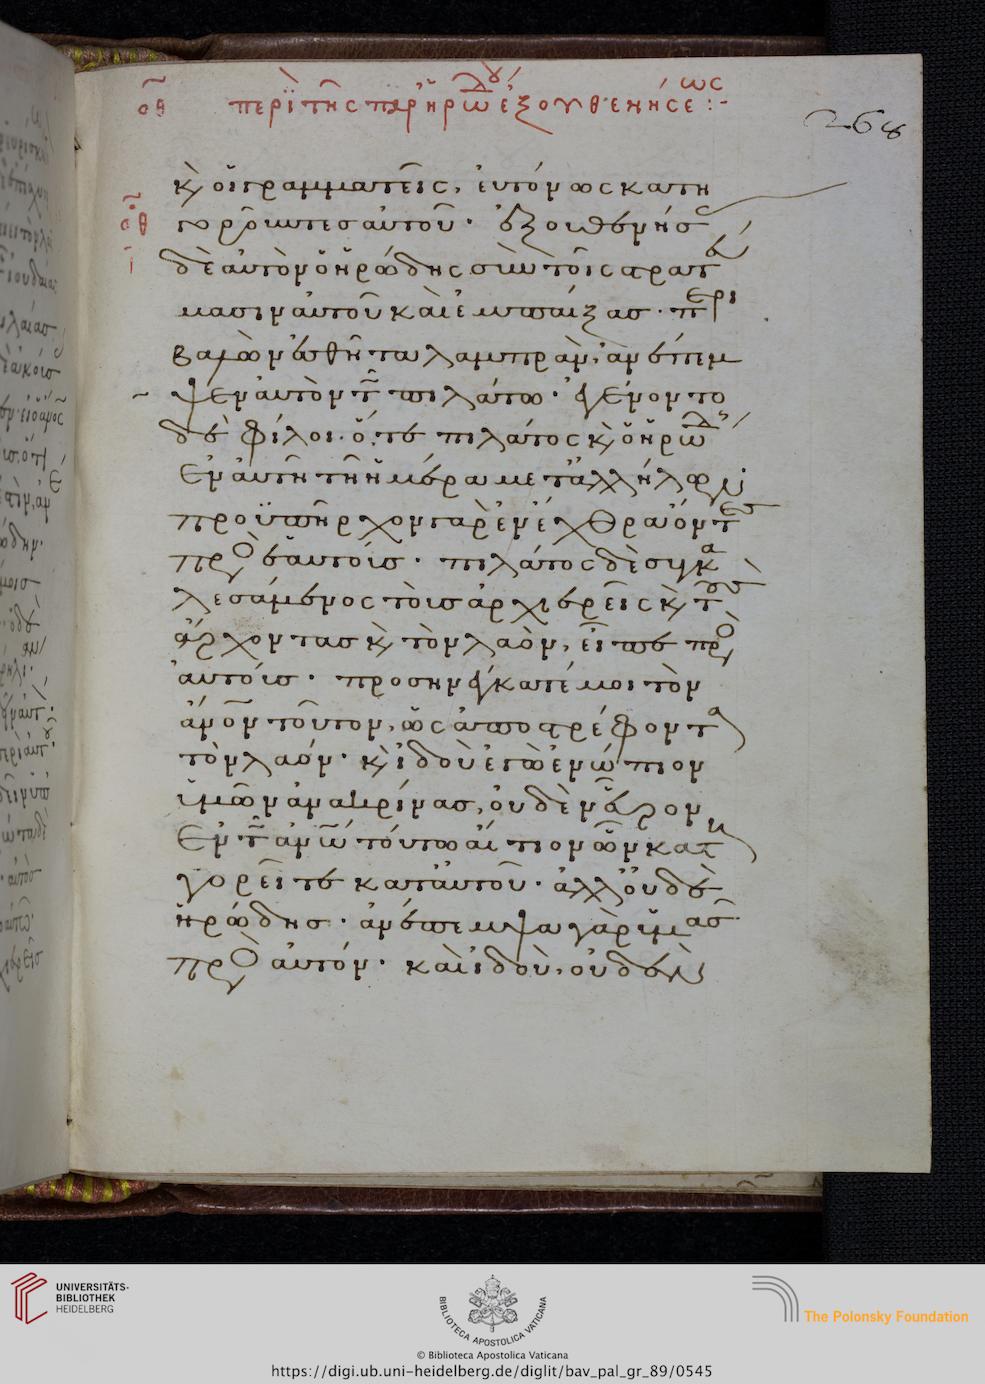 οθ περὶ τῆς παρ' ἡρώδου ἐξουθενήσεως :-
268
κὶ οἱ γραμματεῖς, εὐτόνως κατη
οθ γοροῦντες αὐτοῦ · ἐξουθενήσας
ι δὲ αὐτὸν ὁ ἡρώδης σὺν τοῖς στρατεύ
μασιν αὐτοῦ καὶ ἐμπαίξας · περι
βαλὼν ἐσθῆτα λαμπρὰν, ἀνέπεμ
ψεν αὐτὸν τῶ πιλάτω · ἐγένοντο
δὲ φίλοι · ὅ, τε πιλάτος κὶ ὁ ἡρώδης
ἐν αὐτῆ τῆ ἡμέρα μετ' ἀλλήλων ·
προϋπῆρχον γὰρ ἐν ἔχθρα ὄντες
πρὸς ἑαυτοὺς · πιλάτος δὲ συγκα
λεσάμενος τοὺς ἀρχιερεῖς κὶ τοὺς
ἄρχοντας κὶ τὸν λαὸν, εἶπε πρὸς
αὐτούς · προσηνέγκατέ μοι τὸν
ἄνον τοῦτον, ὡς ἀποστρέφοντα
τὸν λαόν · κὶ ἰδοὺ ἐγὼ ἐνώπιον
ὑμῶν ἀνακρίνας, οὐδὲν εὗρον
ἐν τῶ ἀνω τούτω αἴτιον ὧν κατη
γορεῖτε κατ' αὐτοῦ · ἀλλ' οὐδὲ
ἡρώδης · ἀνέπεμψα γὰρ ὑμᾶς
πρὸς αὐτόν · καὶ ἰδοὺ, οὐδὲν
UNIVERSITÄTS-
BIBLIOTHEK
HEIDELBERG
BIBLIOTECA APOSTOLICA VATICANA
The Polonsky Foundation
© Biblioteca Apostolica Vaticana
https://digi.ub.uni-heidelberg.de/diglit/bav_pal_gr_89/0545